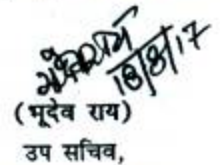 18/8/17
(भूदेव राय)
उप सचिव,